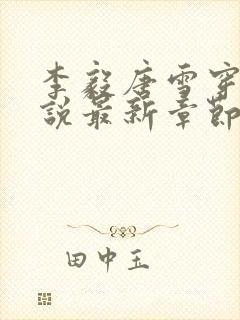 李毅唐雪穿
说最新章節
田中玉